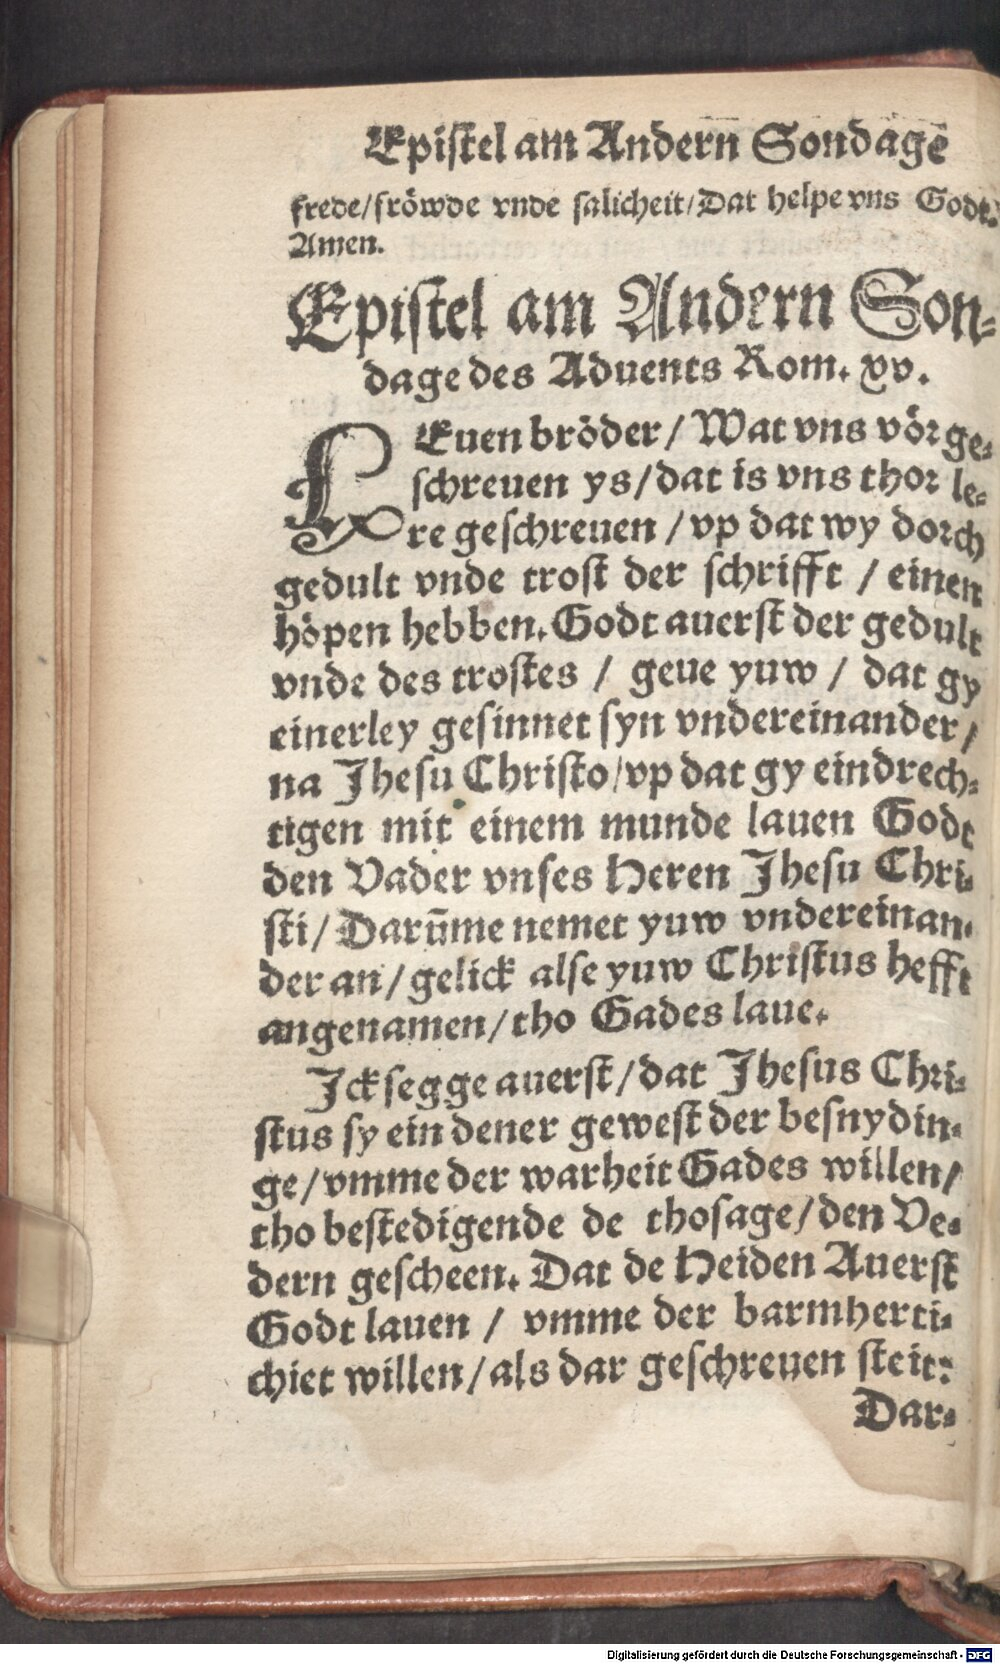 Epistel am Andern Sondage
frede/fröwde vnde salicheit/Dat helpe vns Godt.
Amen.
Epistel am Andern Son-
dage des Aduents Rom. xv.
LEuen bröder / Wat vns vör ge-
schreuen ys/dat is vns thor le-
re geschreuen / vp dat wy dorch
gedult vnde trost der schrifft / einen
höpen hebben. Godt auerst der gedult
vnde des trostes / geue yuw / dat gy
einerley gesinnet syn vndereinander /
na Jhesu Christo/vp dat gy eindrech-
tigen mit einem munde lauen Godt
den Vader vnses Heren Jhesu Chri-
sti/ Darūme nemet yuw vndereinan-
der an/gelick alse yuw Christus hefft
angenamen/tho Gades laue.
Jck segge auerst/dat Jhesus Chri-
stus sy ein dener gewest der besnydin-
ge/vmme der warheit Gades willen/
tho bestedigende de thosage/den Ve-
dern gescheen. Dat de Heiden Auerst
Godt lauen / vmme der barmherti-
chiet willen/als dar geschreuen steit:
Dar-
Digitalisierung gefördert durch die Deutsche Forschungsgemeinschaft - DFG